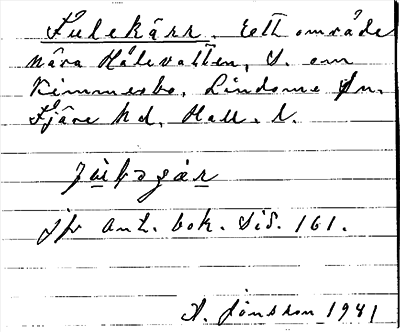 Fulekärr. Ett område
nära Hålevatten, S. om
Kimmesbo, Lindome sn.
Fjäre hd, Hall. l.
jfr ant. bok. sid. 161.
A. Jonsson 1941